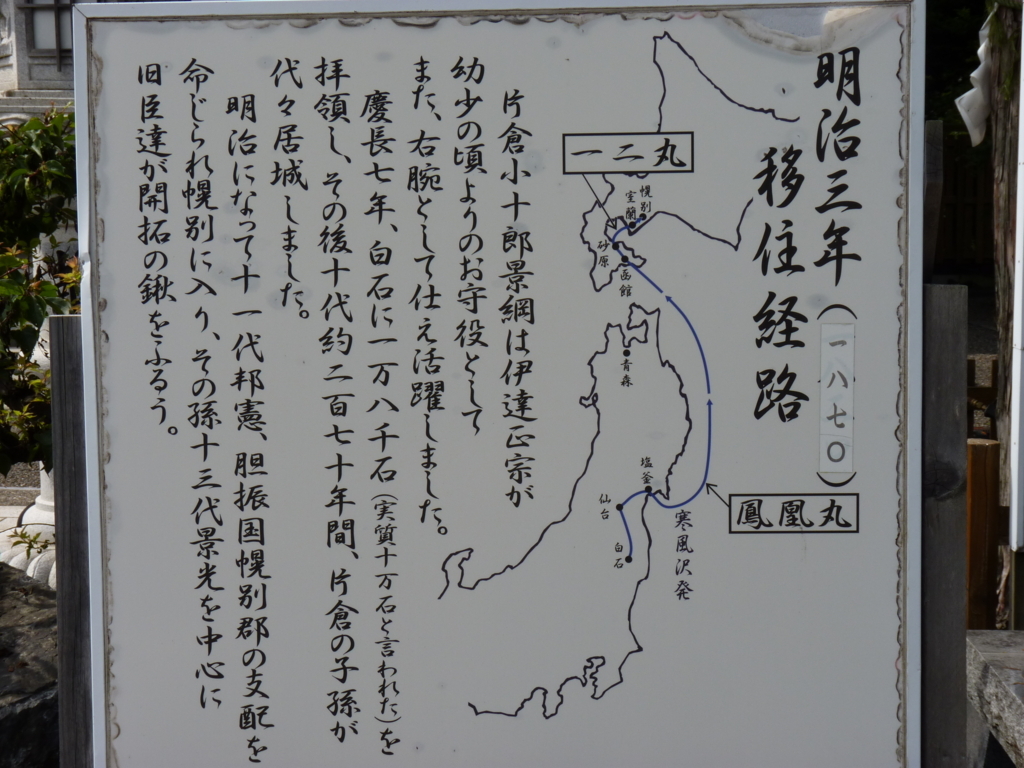 明治三年(一八七〇)
移住経路
一二丸
幌別
室蘭
砂原
函館
青森
塩釜
仙台
白石
寒風沢発
鳳凰丸
片倉小十郎景綱は伊達正宗が
幼少の頃よりのお守役として
また、右腕として仕え活躍しました。
慶長七年、白石に一万八千石(実質十万石と言われた)を
拝領し、その後十代約二百七十年間、片倉の子孫が
代々居城しました。
明治になって十一代邦憲、胆振国幌別郡の支配を
命じられ幌別に入り、その孫十三代景光を中心に
旧臣達が開拓の鍬をふるう。